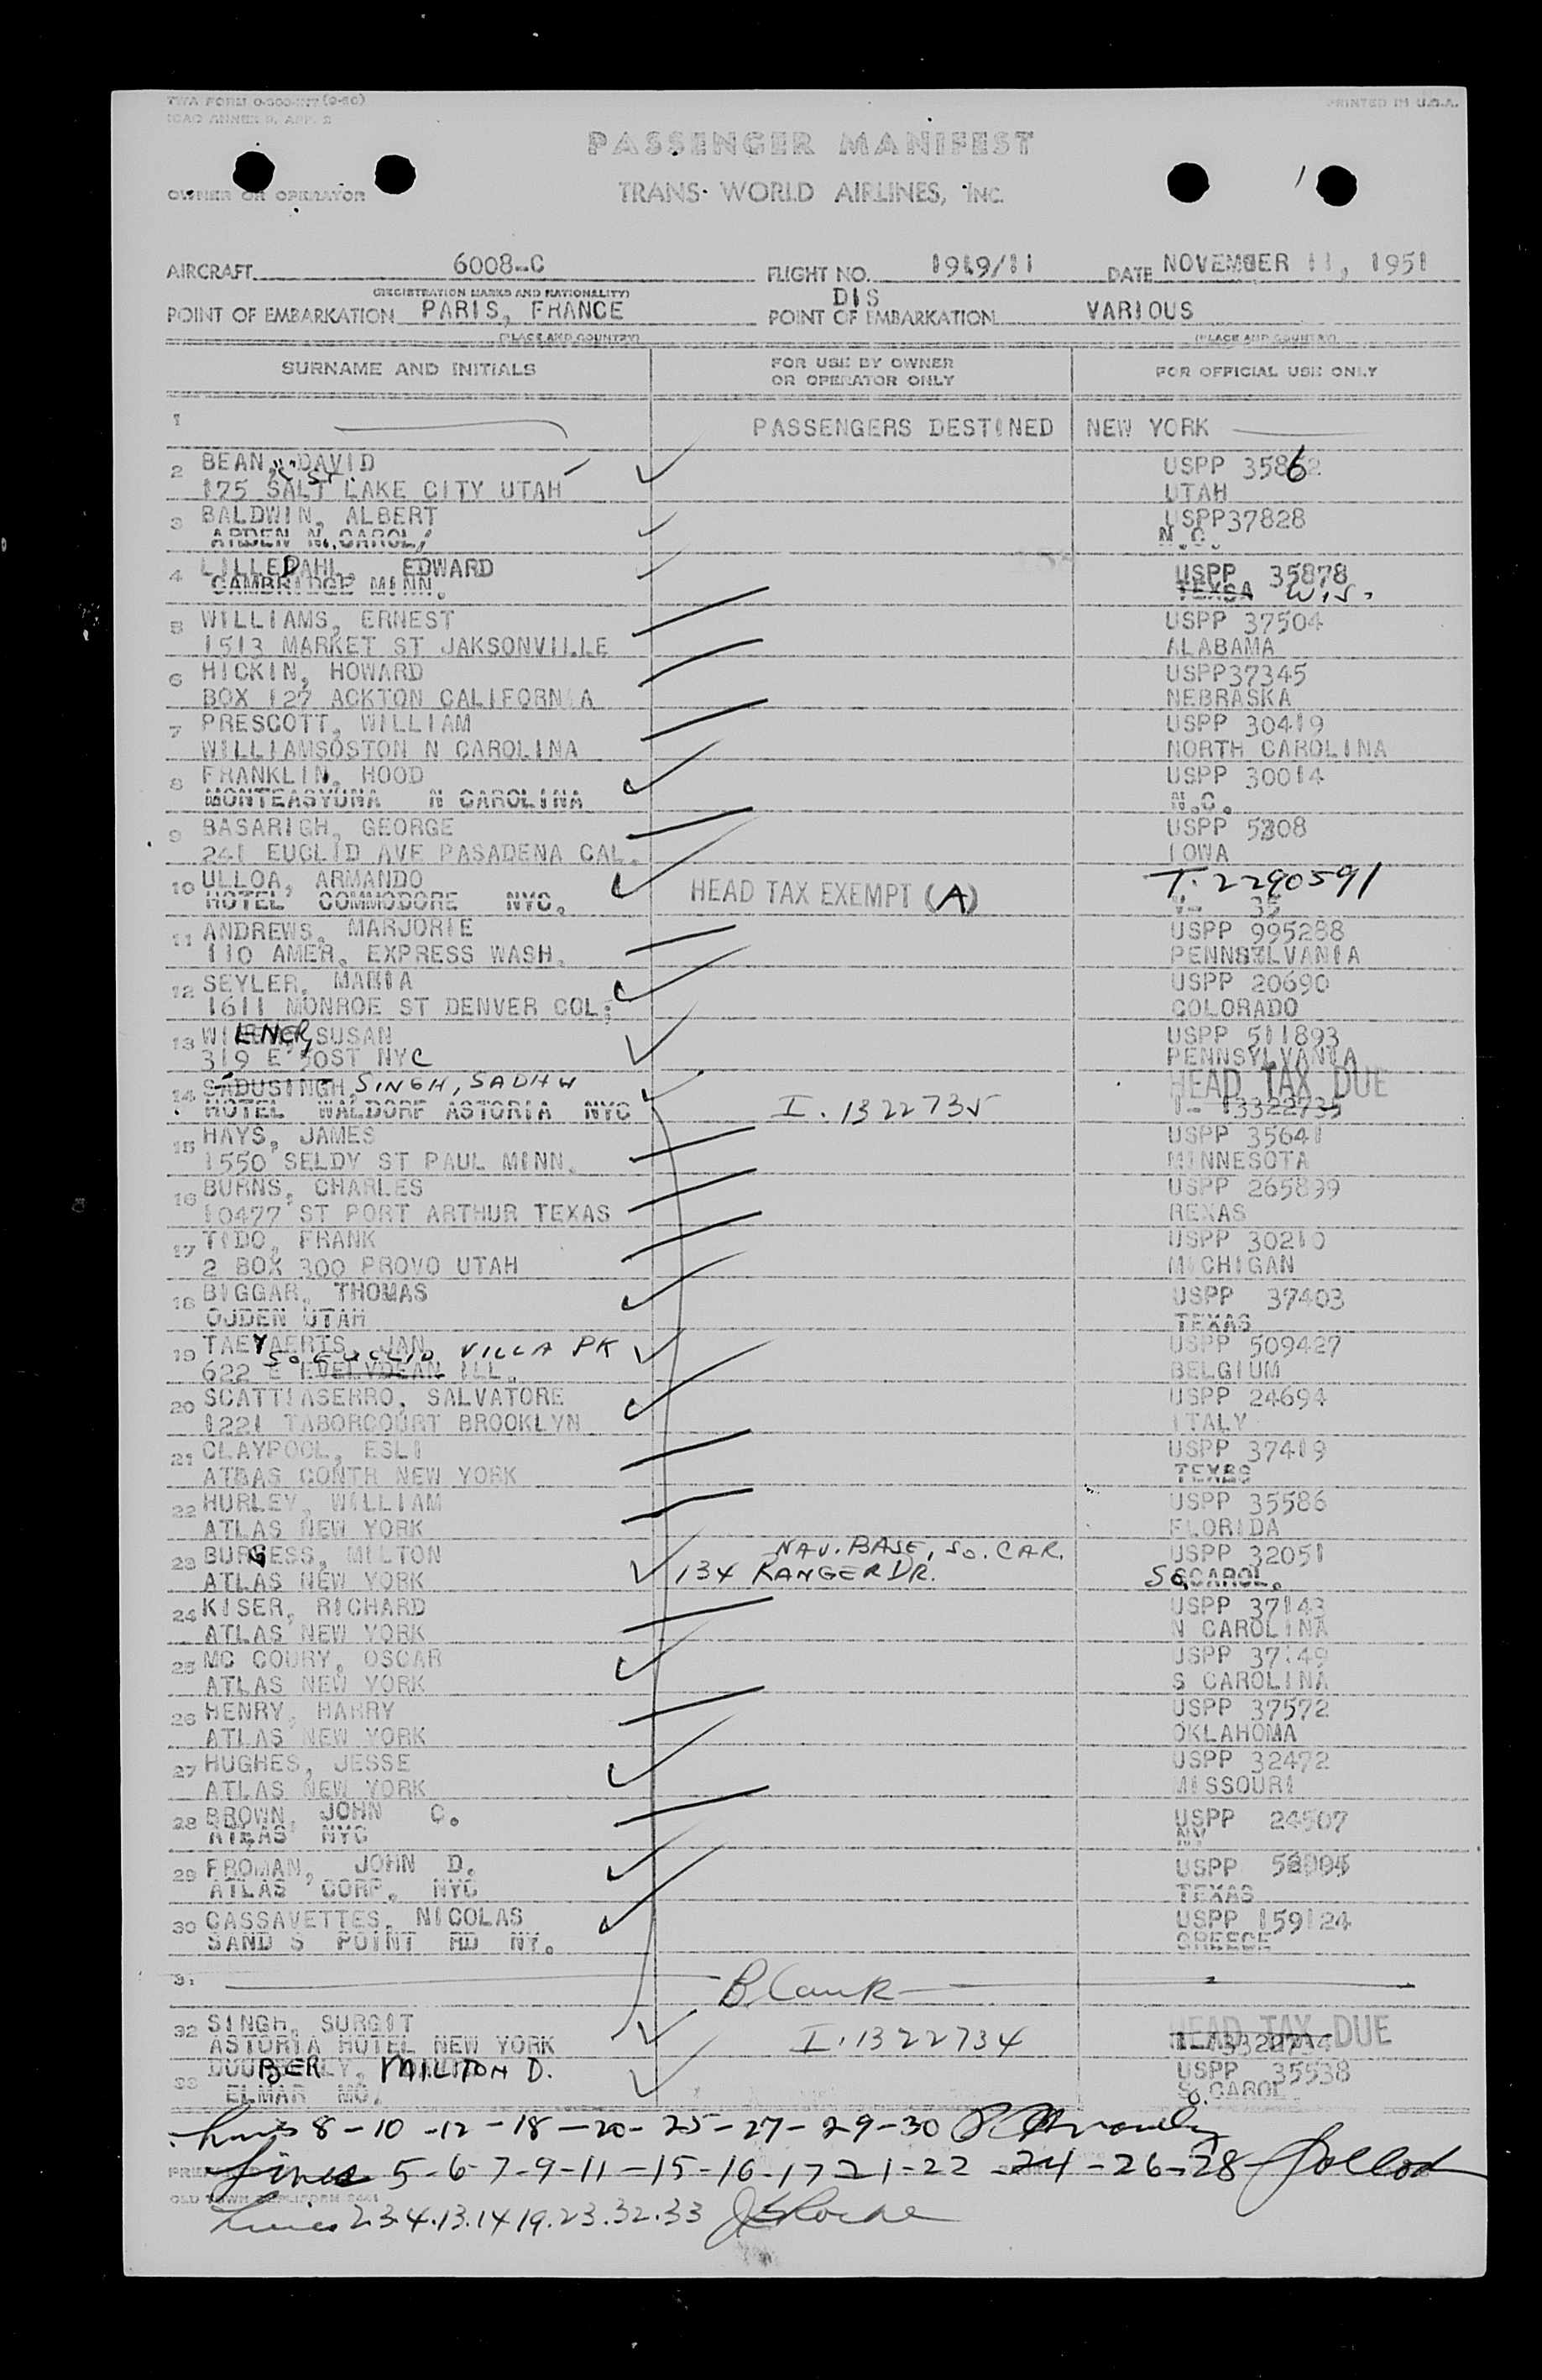 TWA FORM
ICAO ANNEX 9, APP. 2
PRINTED IN U.S.A.
PASSENGER MANIFEST
OWNER OR OPERATOR
TRANS WORLD AIRLINES, INC.
AIRCRAFT 6008-C FLIGHT NO. 1919/11 DATE NOVEMBER 11, 1951
(REGISTRATION MARKS AND NATIONALITY)
DIS
POINT OF EMBARKATION PARIS, FRANCE POINT OF EMBARKATION VARIOUS
(PLACE AND COUNTRY) (PLACE AND COUNTRY)
SURNAME AND INITIALS FOR USE BY OWNER OR OPERATOR ONLY FOR OFFICIAL USE ONLY
1 PASSENGERS DESTINED NEW YORK
2 BEAN, DAVID USPP
175 SALT LAKE CITY UTAH UTAH
3 BALDWIN, ALBERT USPP37828
ARDEN N.CAROL, N.C.
4 LILLEDAHL, EDWARD USPP 35878
CAMBRIDGE MINN. TEXSA WIS.
5 WILLIAMS, ERNEST USPP 37504
1513 MARKET ST JAKSONVILLE ALABAMA
6 HICKIN, HOWARD USPP37345
BOX 127 ACKTON CALIFORNIA NEBRASKA
7 PRESCOTT, WILLIAM USPP 30419
WILLIAMSOSTON N CAROLINA NORTH CAROLINA
8 FRANKLIN, HOOD USPP 30014
MONTEASVUNA N CAROLINA N.C.
9 BASARIGH, GEORGE USPP
241 EUCLID AVE PASADENA CAL. IOWA
10 ULLOA, ARMANDO HEAD TAX EXEMPT (A) T. 2290591
HOTEL COMMODORE NYC. V- 35
11 ANDREWS, MARJORIE USPP 995288
110 AMER. EXPRESS WASH. PENNSYLVANIA
12 SEYLER, MARIA USPP 20690
1611 MONROE ST DENVER COL; COLORADO
13 WILENER, SUSAN USPP 511893
319 E 50ST NYC PENNSYLVANIA
14 SADUSINGH, SINGH, SADHU HEAD TAX DUE
HOTEL WALDORF ASTORIA NYC I. 1322735 I- 13322735
15 HAYS, JAMES USPP 35641
1550 SELDY ST PAUL MINN. MINNESOTA
16 BURNS, CHARLES USPP 265899
10477 ST PORT ARTHUR TEXAS REXAS
17 TIDO, FRANK USPP 30210
2 BOX 300 PROVO UTAH MICHIGAN
18 BIGGAR, THOMAS USPP 37403
OJDEN UTAH TEXAS
19 TAEYAERTS, JAN USPP 509427
SO. EUCLID VILLA PK
622 E EVELYDEAN ILL. BELGIUM
20 SCATTIASERRO, SALVATORE USPP 24694
1221 TABORCOURT BROOKLYN ITALY
21 CLAYPOOL, ESLI USPP 37419
ATBAS CONTR NEW YORK TEXES
22 HURLEY, WILLIAM USPP 35586
ATLAS NEW YORK FLORIDA
23 BURGESS, MILTON NAV. BASE, SO. CAR. USPP 32051
ATLAS NEW YORK 134 RANGER DR. SO CAROL.
24 KISER, RICHARD USPP 37143
ATLAS NEW YORK N CAROLINA
25 MC COURY, OSCAR USPP 37149
ATLAS NEW YORK S CAROLINA
26 HENRY, HARRY USPP 37572
ATLAS NEW YORK OKLAHOMA
27 HUGHES, JESSE USPP 32472
ATLAS NEW YORK MISSOURI
28 BROWN, JOHN C. USPP 24507
ATLAS NYC NY
29 FROMAN, JOHN D. USPP
ATLAS CORP. NYC TEXAS
30 CASSAVETTES, NICOLAS USPP 159124
SAND S POINT RD NY. GREECE
31 Blank
32 SINGH, SURGIT HEAD TAX DUE
ASTORIA HOTEL NEW YORK I. 1322734
33 BER MILITON D. USPP 35538
ELMAR MO. S. CAROL
Lines 8-10-12-18-20-25-27-29-30
Lines 5-6-7-9-11-15-16-17-21-22-24-26-28
Lines 2.3.4.13.14 19.23.32.33